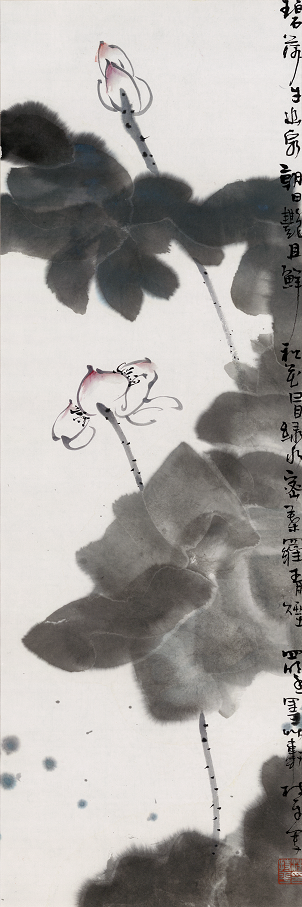 碧荷生幽泉朝日艷且鮮 秋花冒綠水密葉羅青煙